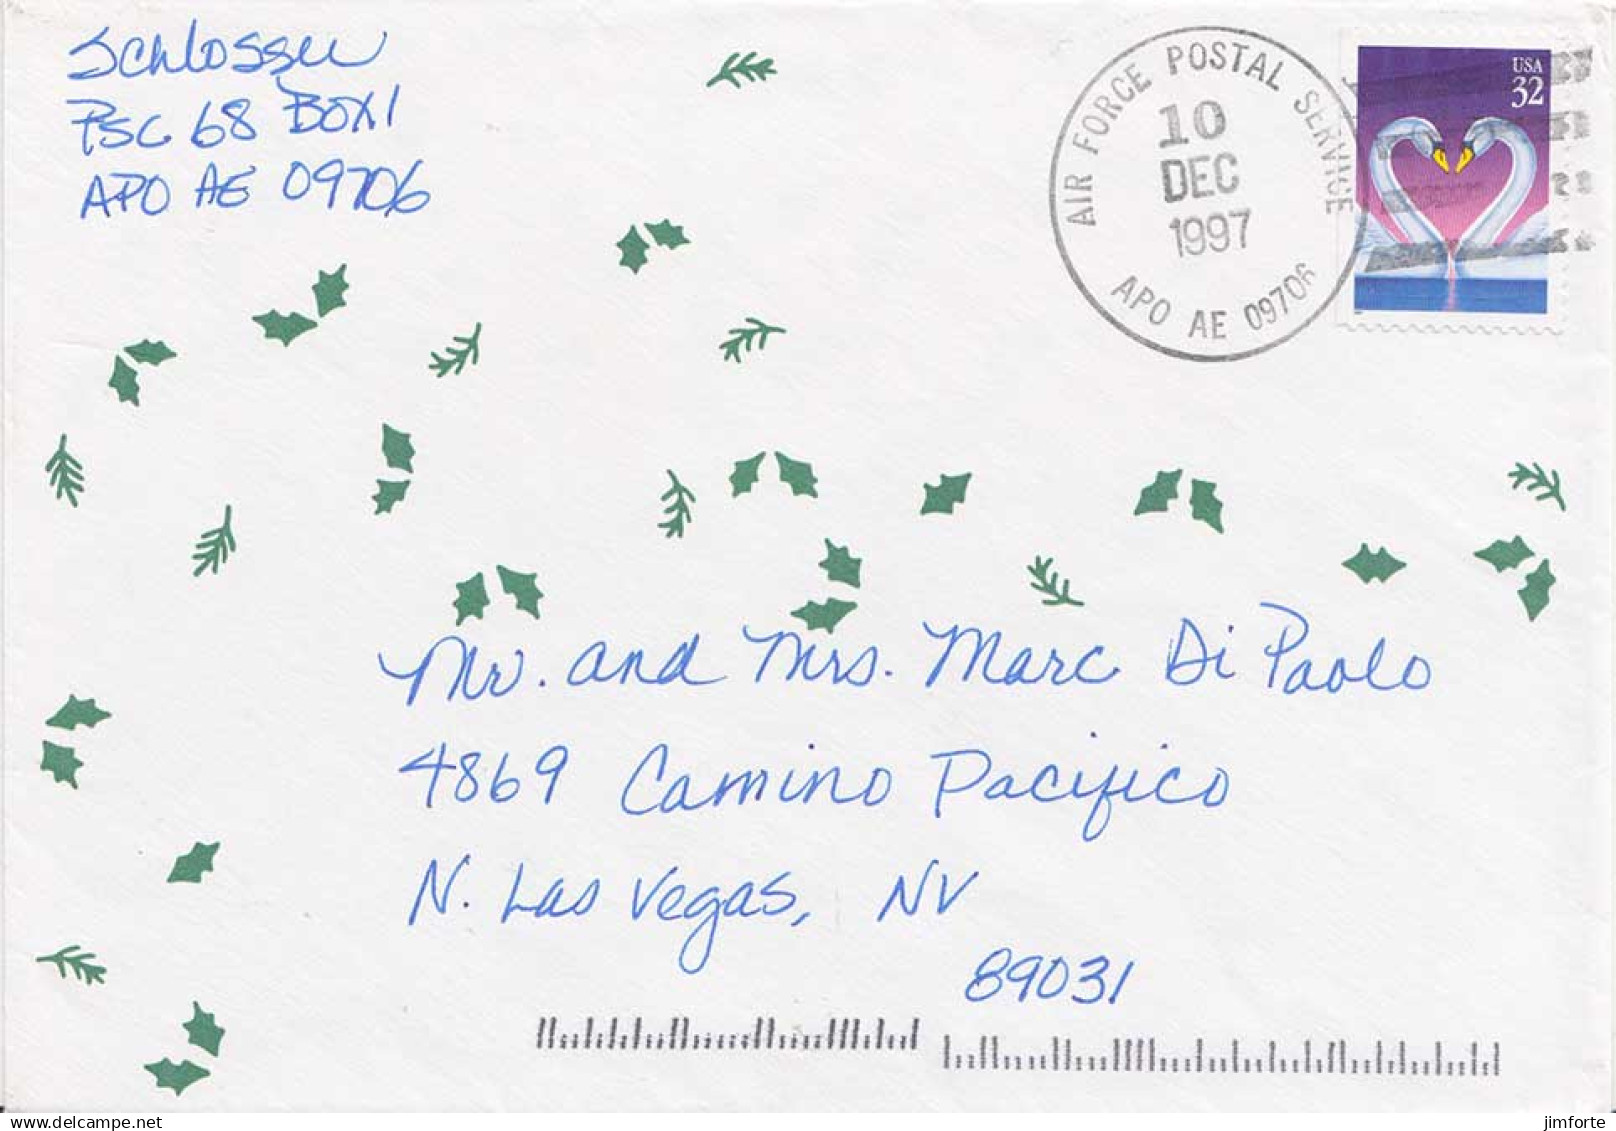 Schlosser
PSC 68 BOX 1
APO AE 09706
AIR FORCE POSTAL SERVICE
10
DEC
1997
APO AE 09706
USA
32
Mr. and Mrs. Marc Di Paolo
4869 Camino Pacifico
N. Las Vegas, NV
89031
www.delcampe.net
jimforte